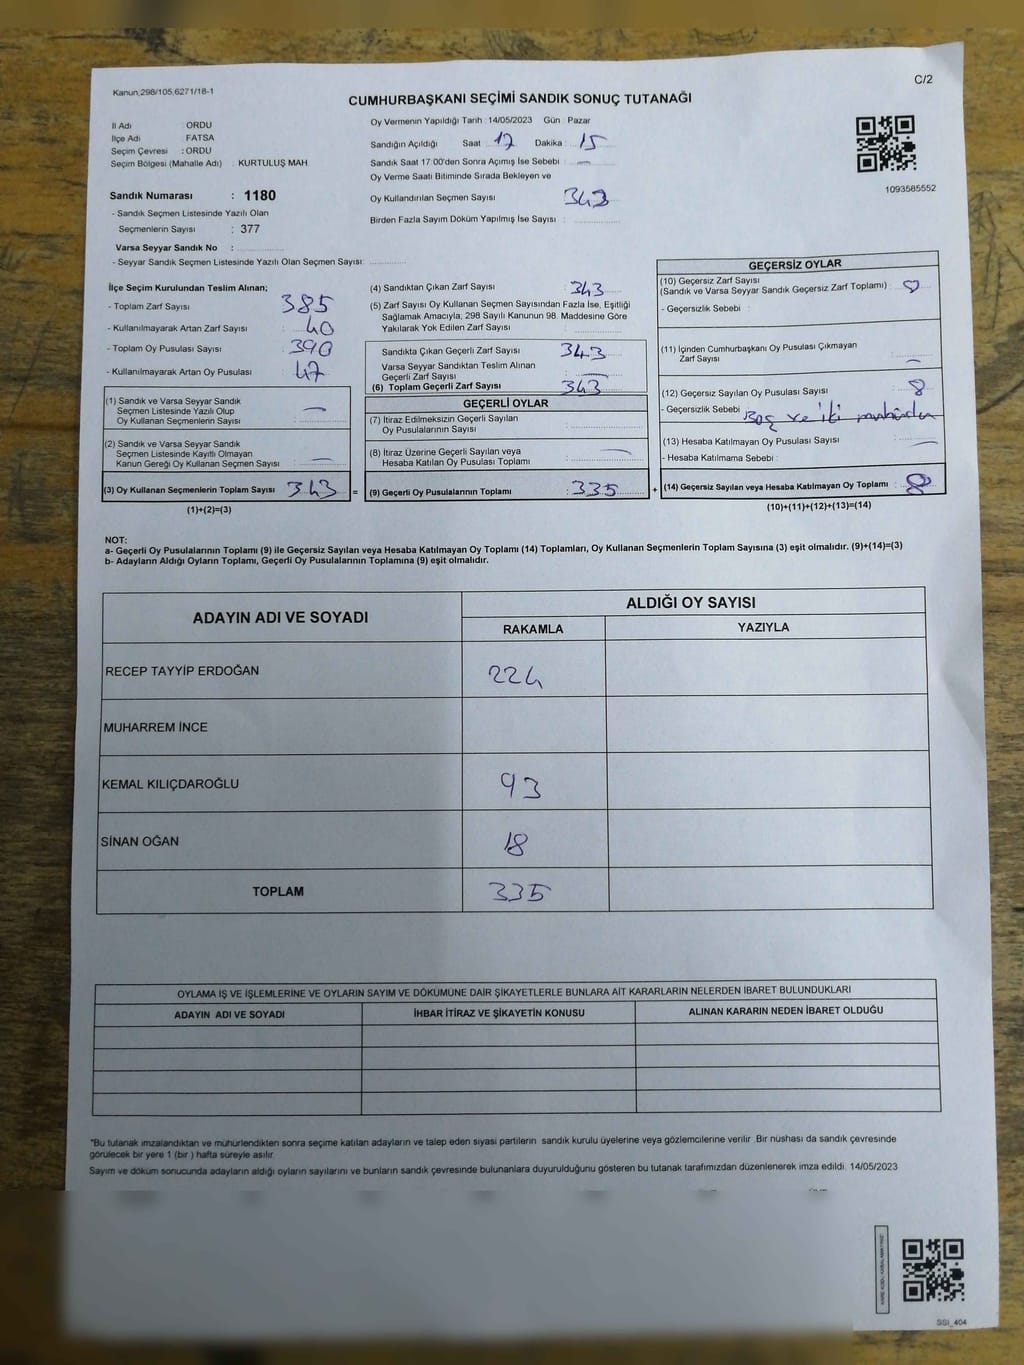 Kanun;298/105,6271/18-1
C/2
CUMHURBAŞKANI SEÇİMİ SANDIK SONUÇ TUTANAĞI
İl Adı ORDU
İlçe Adı FATSA
Seçim Çevresi : ORDU
Seçim Bölgesi (Mahalle Adı) : KURTULUŞ MAH
Sandık Numarası : 1180
- Sandık Seçmen Listesinde Yazılı Olan
Seçmenlerin Sayısı : 377
Varsa Seyyar Sandık No :
- Seyyar Sandık Seçmen Listesinde Yazılı Olan Seçmen Sayısı:
Oy Vermenin Yapıldığı Tarih : 14/05/2023 Gün : Pazar
Sandığın Açıldığı Saat : 17 Dakika : 15
Sandık Saat 17:00'den Sonra Açımış İse Sebebi : —
Oy Verme Saati Bitiminde Sırada Bekleyen ve
Oy Kullandırılan Seçmen Sayısı 343
Birden Fazla Sayım Döküm Yapılmış İse Sayısı :
1093585552
İlçe Seçim Kurulundan Teslim Alınan;
- Toplam Zarf Sayısı : 385
- Kullanılmayarak Artan Zarf Sayısı : 40
- Toplam Oy Pusulası Sayısı : 390
- Kullanılmayarak Artan Oy Pusulası : 47
(1) Sandık ve Varsa Seyyar Sandık
Seçmen Listesinde Yazılı Olup
Oy Kullanan Seçmenlerin Sayısı : —
(2) Sandık ve Varsa Seyyar Sandık
Seçmen Listesinde Kayıtlı Olmayan
Kanun Gereği Oy Kullanan Seçmen Sayısı : —
(3) Oy Kullanan Seçmenlerin Toplam Sayısı 343 =
(1)+(2)=(3)
(4) Sandıktan Çıkan Zarf Sayısı : 343
(5) Zarf Sayısı Oy Kullanan Seçmen Sayısından Fazla İse, Eşitliği
Sağlamak Amacıyla, 298 Sayılı Kanunun 98. Maddesine Göre
Yakılarak Yok Edilen Zarf Sayısı :
Sandıkta Çıkan Geçerli Zarf Sayısı : 343
Varsa Seyyar Sandıktan Teslim Alınan
Geçerli Zarf Sayısı : —
(6) Toplam Geçerli Zarf Sayısı : 343
GEÇERLİ OYLAR
(7) İtiraz Edilmeksizin Geçerli Sayılan
Oy Pusulalarının Sayısı :
(8) İtiraz Üzerine Geçerli Sayılan veya
Hesaba Katılan Oy Pusulası Toplamı : —
(9) Geçerli Oy Pusulalarının Toplamı : 335 +
GEÇERSİZ OYLAR
(10) Geçersiz Zarf Sayısı
(Sandık ve Varsa Seyyar Sandık Geçersiz Zarf Toplamı) :
- Geçersizlik Sebebi :
(11) İçinden Cumhurbaşkanı Oy Pusulası Çıkmayan
Zarf Sayısı : —
(12) Geçersiz Sayılan Oy Pusulası Sayısı : 8
- Geçersizlik Sebebi : Boş ve iki mühürden
(13) Hesaba Katılmayan Oy Pusulası Sayısı : —
- Hesaba Katılmama Sebebi :
(14) Geçersiz Sayılan veya Hesaba Katılmayan Oy Toplamı : 8
(10)+(11)+(12)+(13)=(14)
NOT:
a- Geçerli Oy Pusulalarının Toplamı (9) ile Geçersiz Sayılan veya Hesaba Katılmayan Oy Toplamı (14) Toplamları, Oy Kullanan Seçmenlerin Toplam Sayısına (3) eşit olmalıdır. (9)+(14)=(3)
b- Adayların Aldığı Oyların Toplamı, Geçerli Oy Pusulalarının Toplamına (9) eşit olmalıdır.
ADAYIN ADI VE SOYADI
ALDIĞI OY SAYISI
RAKAMLA YAZIYLA
RECEP TAYYİP ERDOĞAN 224
MUHARREM İNCE
KEMAL KILIÇDAROĞLU 93
SİNAN OĞAN 18
TOPLAM 335
OYLAMA İŞ VE İŞLEMLERİNE VE OYLARIN SAYIM VE DÖKÜMÜNE DAİR ŞİKAYETLERLE BUNLARA AİT KARARLARIN NELERDEN İBARET BULUNDUKLARI
ADAYIN ADI VE SOYADI İHBAR İTİRAZ VE ŞİKAYETİN KONUSU ALINAN KARARIN NEDEN İBARET OLDUĞU
*Bu tutanak imzalandıktan ve mühürlendikten sonra seçime katılan adayların ve talep eden siyasi partilerin sandık kurulu üyelerine veya gözlemcilerine verilir .Bir nüshası da sandık çevresinde
görülecek bir yere 1 (bir ) hafta süreyle asılır.
Sayım ve döküm sonucunda adayların aldığı oyların sayılarını ve bunların sandık çevresinde bulunanlara duyurulduğunu gösteren bu tutanak tarafımızdan düzenlenerek imza edildi. 14/05/2023
SSI_404